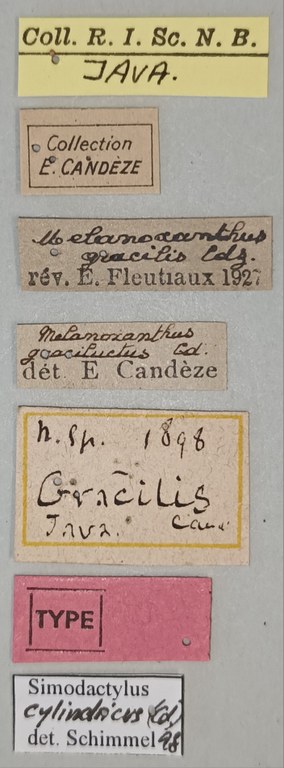 Coll. R. I. Sc. N. B.
JAVA.
Collection
E. CANDÈZE
Melanoxanthus
gracilis Cdz.
rév. E. Fleutiaux 1927
Melanoxanthus
Cd.
dét. E Candèze
n. sp. 1898
Gracilis
Java. Cand
TYPE
Simodactylus
cylindricus (Cd)
det. Schimmel 98